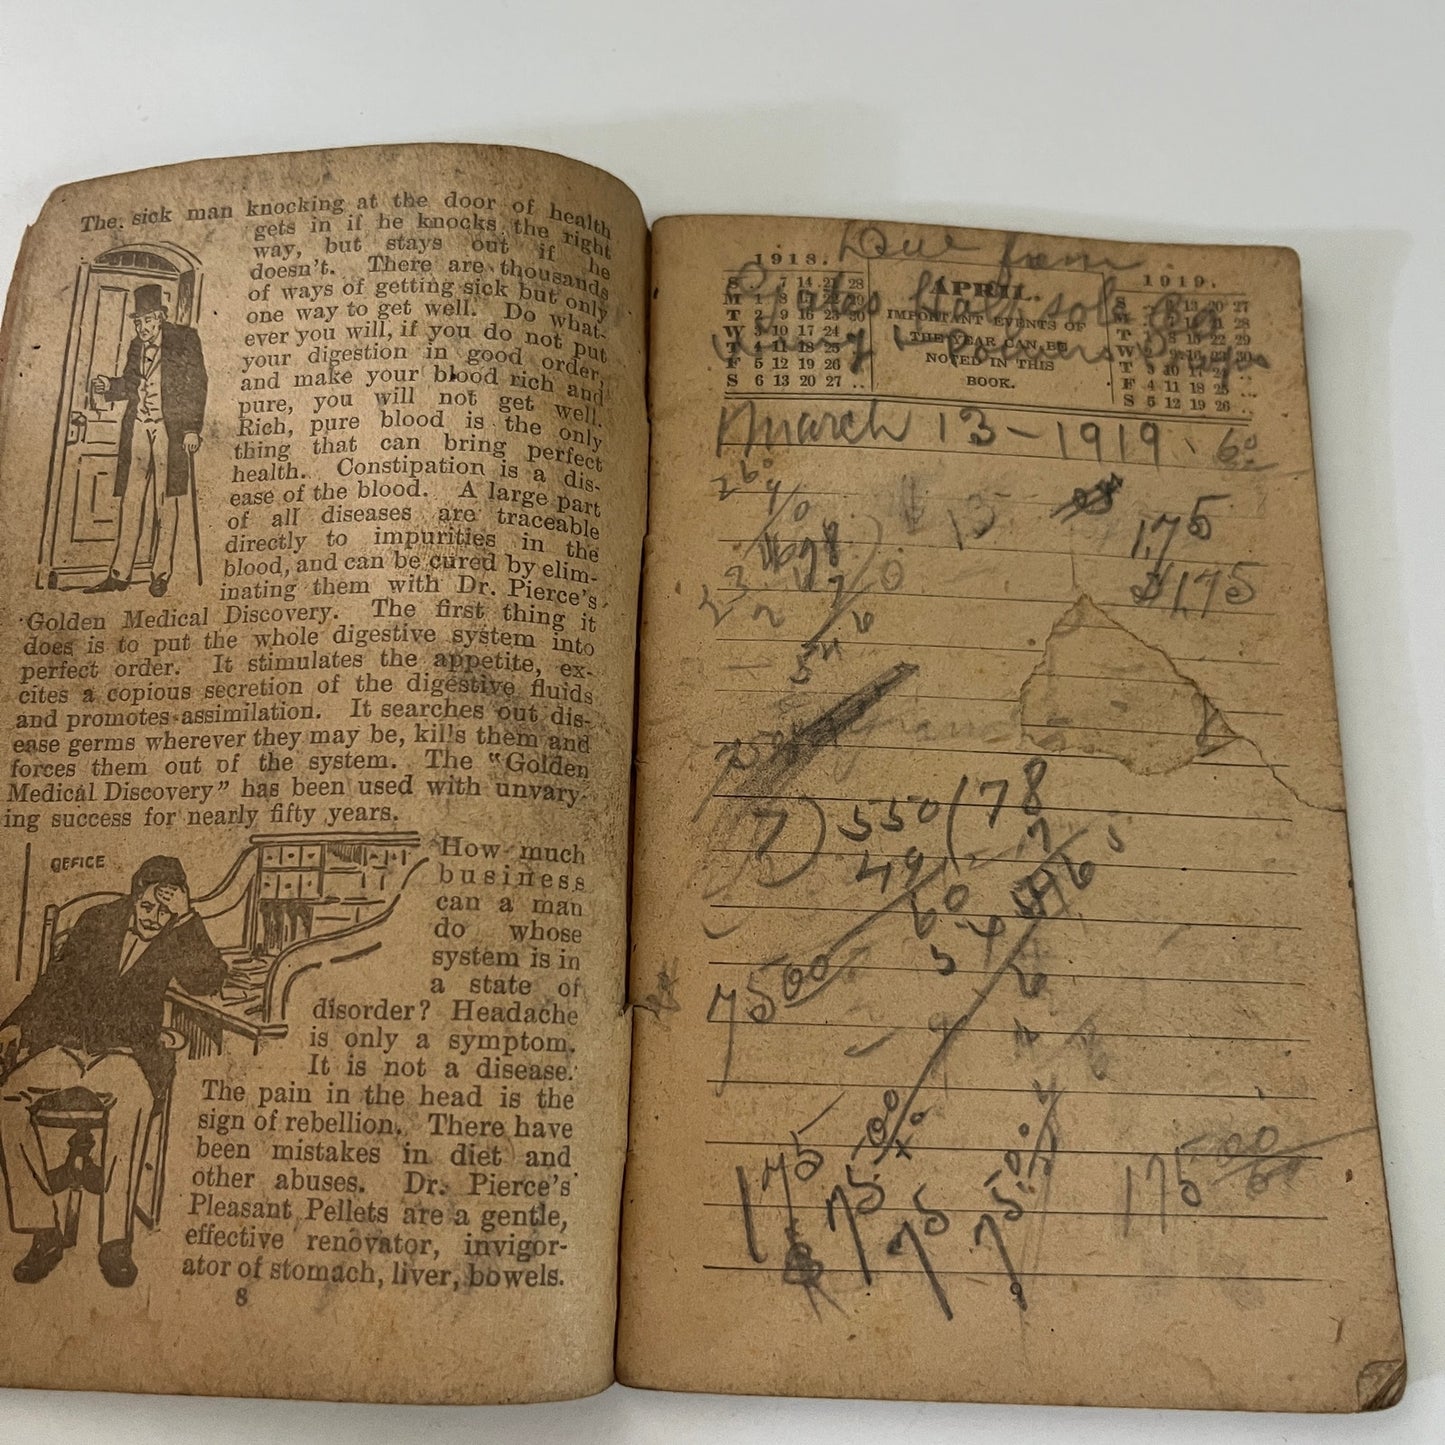 The sick man knocking at the door of health
gets in if he knocks the right
way, but stays out if he
doesn't. There are thousands
of ways of getting sick but only
one way to get well. Do what-
ever you will, if you do not put
your digestion in good order,
and make your blood rich and
pure, you will not get well.
Rich, pure blood is the only
thing that can bring perfect
health. Constipation is a dis-
ease of the blood. A large part
of all diseases are traceable
directly to impurities in the
blood, and can be cured by elim-
inating them with Dr. Pierce's
Golden Medical Discovery. The first thing it
does is to put the whole digestive system into
perfect order. It stimulates the appetite, ex-
cites a copious secretion of the digestive fluids
and promotes assimilation. It searches out dis-
ease germs wherever they may be, kills them and
forces them out of the system. The "Golden
Medical Discovery" has been used with unvary-
ing success for nearly fifty years.
OFFICE
How much
business
can a man
do whose
system is in
a state of
disorder? Headache
is only a symptom.
It is not a disease.
The pain in the head is the
sign of rebellion. There have
been mistakes in diet and
other abuses. Dr. Pierce's
Pleasant Pellets are a gentle,
effective renovator, invigor-
ator of stomach, liver, bowels.
8
Due from
1918.
S 7 14 21 28
M 1 8 15 22 29
T 2 9 16 23 30
W 3 10 17 24 ..
T 4 11 18 25
F 5 12 19 26
S 6 13 20 27 ..
APRIL.
IMPORTANT EVENTS OF
THE YEAR CAN BE
NOTED IN THIS
BOOK.
1919.
S 13 20 27
M 21 28
T 8 15 22 29
W 9 16 23 30
T 3 10 17 24
F 4 11 18 25
S 5 12 19 26
March 13 - 1919
13
175
175
7)550(78
49
60
54
7500
175
75
75
75
175